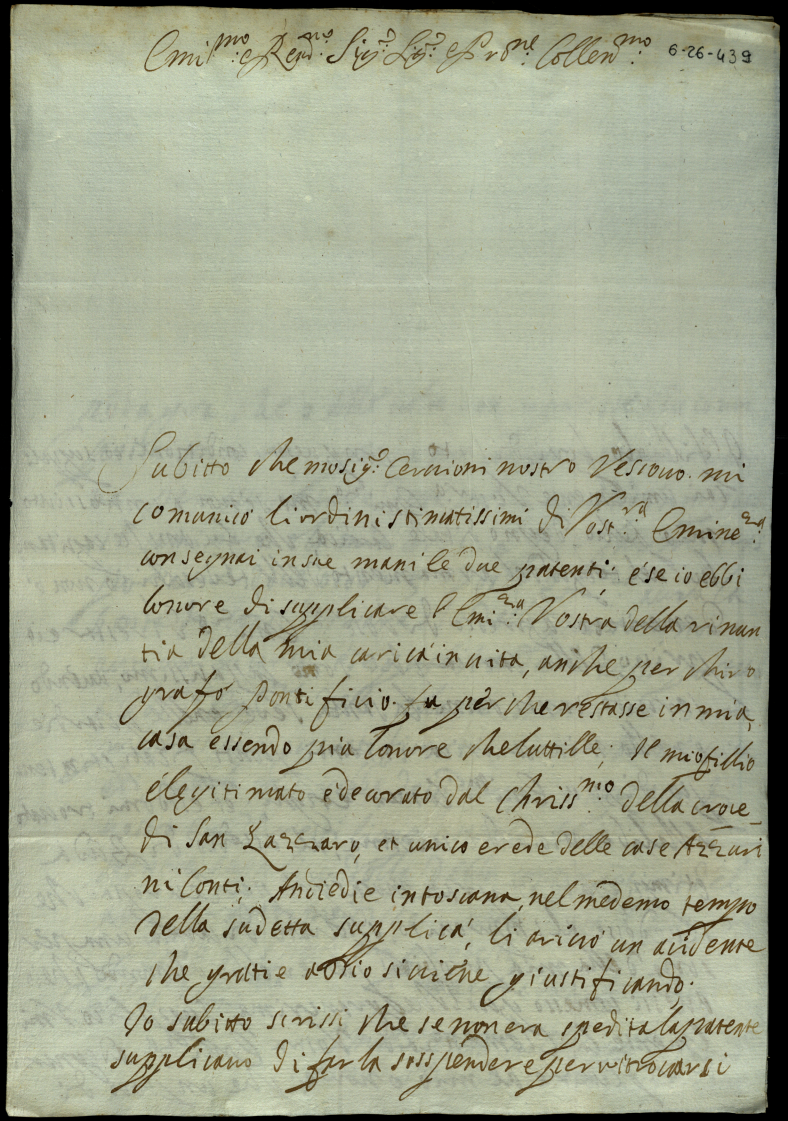 Emi.mo e Rend.mo Sig.r Sig.r e Pro.ne Collen.mo 6-26-439
Subitto che mosig.r Cervioni nostro Vescovo mi
comunicò li ordini stimatissimi di Vost.ra Emine.za
consegnai in sue mani le due patenti; e se io ebbi
lonore di supplicare l'Emi.za Vostra della rinun
tia della mia carica in vita, anche per chiro
grafo Pontificio fu per che restasse in mia
casa essendo più lonore che luttille; il mio fillio
è legitimato e decorato dal Chriss.mo della croce
di San Lazzaro, et unico erede delle case Azzari
ni Conti; in toscana, nel medemo tempo
della sudetta supplica, li arivò un acidente
che gratie a Dio si viene giustificando.
Io subitto scrissi che se non era spedita la patente
supplicavo di far la sosspendere per